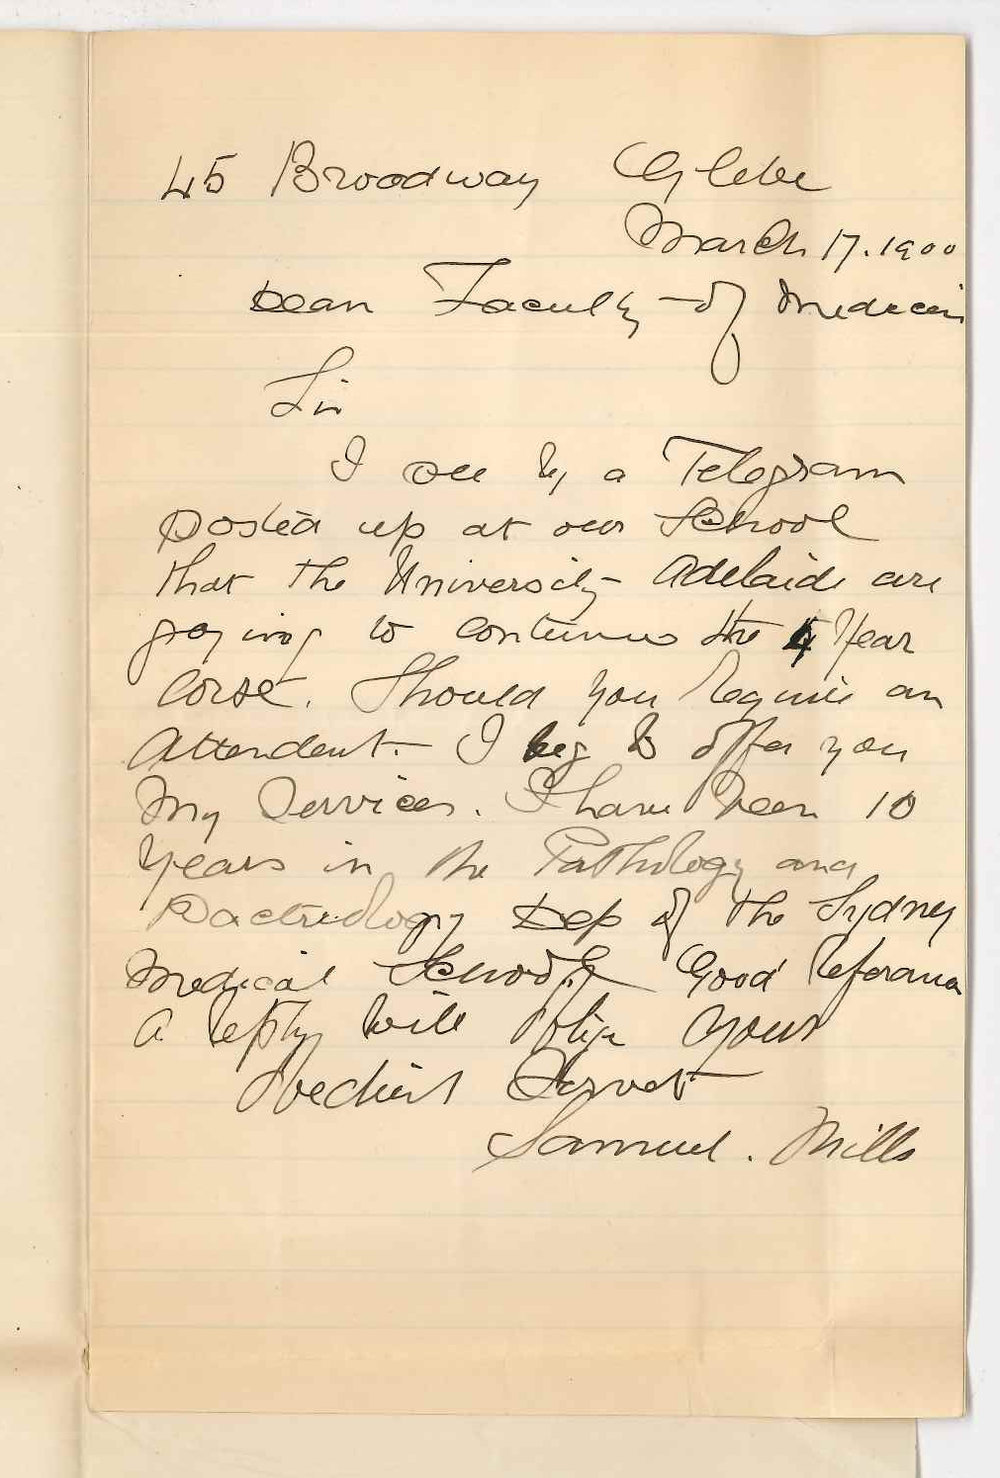 45 Broadway Glebe
March 17. 1900
Dean Faculty of Medecin
Sir
I see by a Telegram
Posted up at our School
that the University Adelaide are
going to continue the 4 Year
Corse. Should you Require an
Attendent. I beg to offer you
My Services. I have been 10
Years in the Pathology and
Bacteriology Dep of the Sydney
Medical School. Good
A reply will oblige Your
Obedient Servet
Samuel. Mills